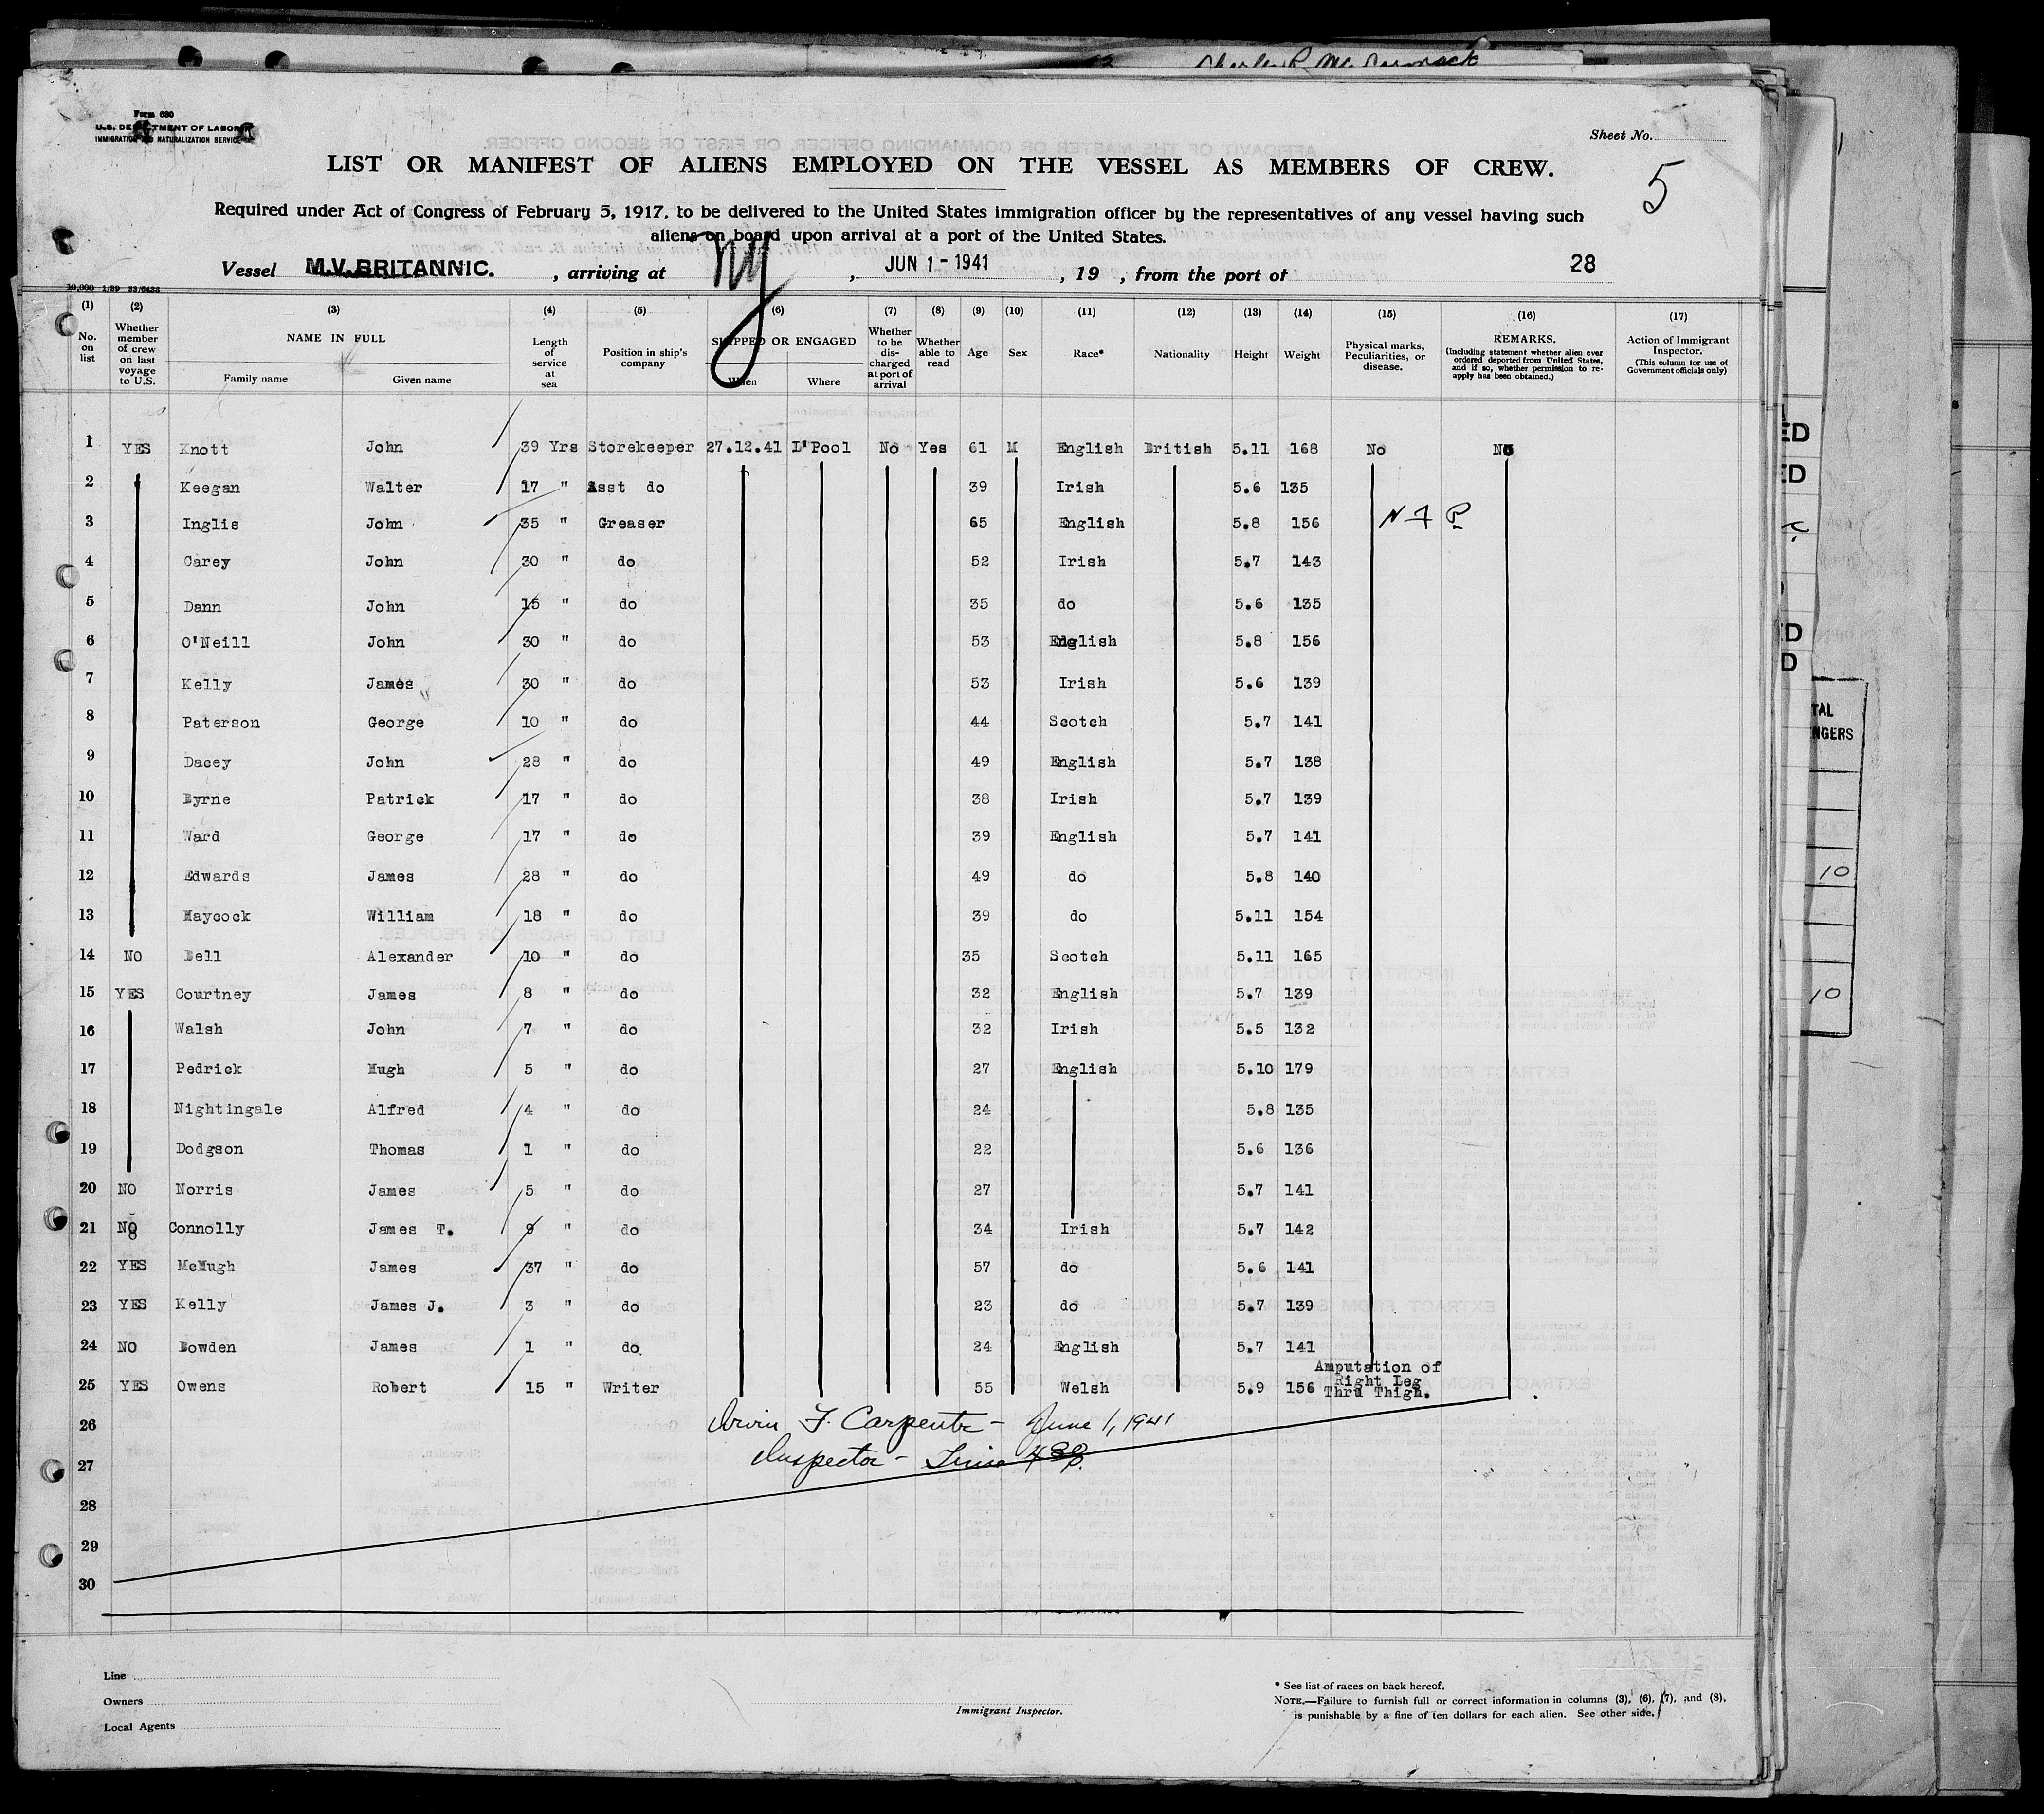 Charles P. McCormack
Form 680
U.S. DEPARTMENT OF LABOR
IMMIGRATION AND NATURALIZATION SERVICE
Sheet No.
5
LIST OR MANIFEST OF ALIENS EMPLOYED ON THE VESSEL AS MEMBERS OF CREW.
Required under Act of Congress of February 5, 1917, to be delivered to the United States immigration officer by the representatives of any vessel having such
aliens on board upon arrival at a port of the United States.
Vessel M.V. BRITANNIC. , arriving at NY , JUN 1 - 1941 , 19 , from the port of 28
10,000 1/39 33/6433
(1) (2) (3) (4) (5) (6) (7) (8) (9) (10) (11) (12) (13) (14) (15) (16) (17)
No. on list Whether member of crew on last voyage to U.S. NAME IN FULL Family name Given name Length of service at sea Position in ship's company SHIPPED OR ENGAGED When Where Whether to be discharged at port of arrival Whether able to read Age Sex Race* Nationality Height Weight Physical marks, Peculiarities, or disease. REMARKS. (Including statement whether alien ever ordered deported from United States, and if so, whether permission to re-apply has been obtained.) Action of Immigrant Inspector. (This column for use of Government officials only)
1 YES Knott John 39 Yrs Storekeeper 27.12.41 L'Pool No Yes 61 M English British 5.11 168 No No
2 " Keegan Walter 17 " Asst do 39 Irish 5.6 135
3 Inglis John 35 " Greaser 65 English 5.8 156
4 Carey John 30 " do 52 Irish 5.7 143
5 Dann John 15 " do 35 do 5.6 135
6 O'Neill John 30 " do 53 English 5.8 156
7 Kelly James 30 " do 53 Irish 5.6 139
8 Paterson George 10 " do 44 Scotch 5.7 141
9 Dacey John 28 " do 49 English 5.7 138
10 Byrne Patrick 17 " do 38 Irish 5.7 139
11 Ward George 17 " do 39 English 5.7 141
12 Edwards James 28 " do 49 do 5.8 140
13 Haycock William 18 " do 39 do 5.11 154
14 NO Bell Alexander 10 " do 35 Scotch 5.11 165
15 YES Courtney James 8 " do 32 English 5.7 139
16 Walsh John 7 " do 32 Irish 5.5 132
17 Pedrick Hugh 5 " do 27 English 5.10 179
18 Nightingale Alfred 4 " do 24 5.8 135
19 Dodgson Thomas 1 " do 22 5.6 136
20 NO Norris James 5 " do 27 5.7 141
21 NO Connolly James T. 9 " do 34 Irish 5.7 142
22 YES McHugh James 37 " do 57 do 5.6 141
23 YES Kelly James J. 3 " do 23 do 5.7 139
24 NO Bowden James 1 " do. 24 English 5.7 141
25 YES Owens Robert 15 " Writer 55 Welsh 5.9 156 Amputation of Right Leg Thru Thigh.
26 Irvin F. Carpenter - June 1, 1941
27 Inspector - Time 430p.
28
29
30
Line
Owners
Local Agents
Immigrant Inspector.
* See list of races on back hereof.
NOTE.—Failure to furnish full or correct information in columns (3), (6), (7), and (8),
is punishable by a fine of ten dollars for each alien. See other side.
10
10